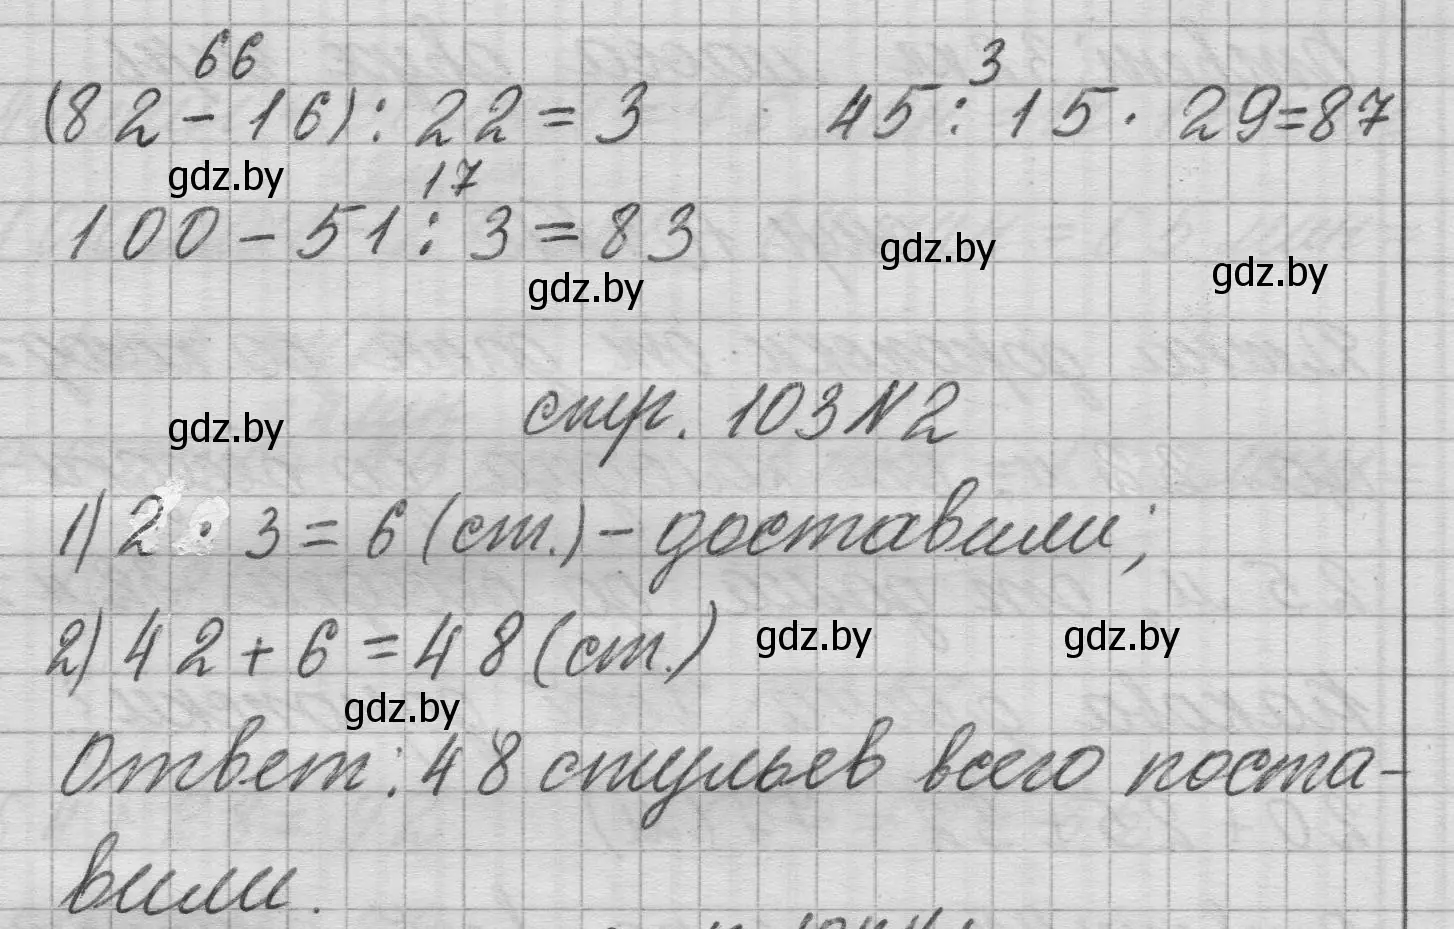 66 3
(82-16):22=3 45:15·29=87
gdz.by 17
100-51:3=83 gdz.by
gdz.by gdz.by
gdz.by стр. 103 N2
1) 2·3=6 (ст.) - доставили;
2) 42+6=48 (ст.) gdz.by gdz.by
gdz.by
Ответ: 48 стульев всего поста-
вили.